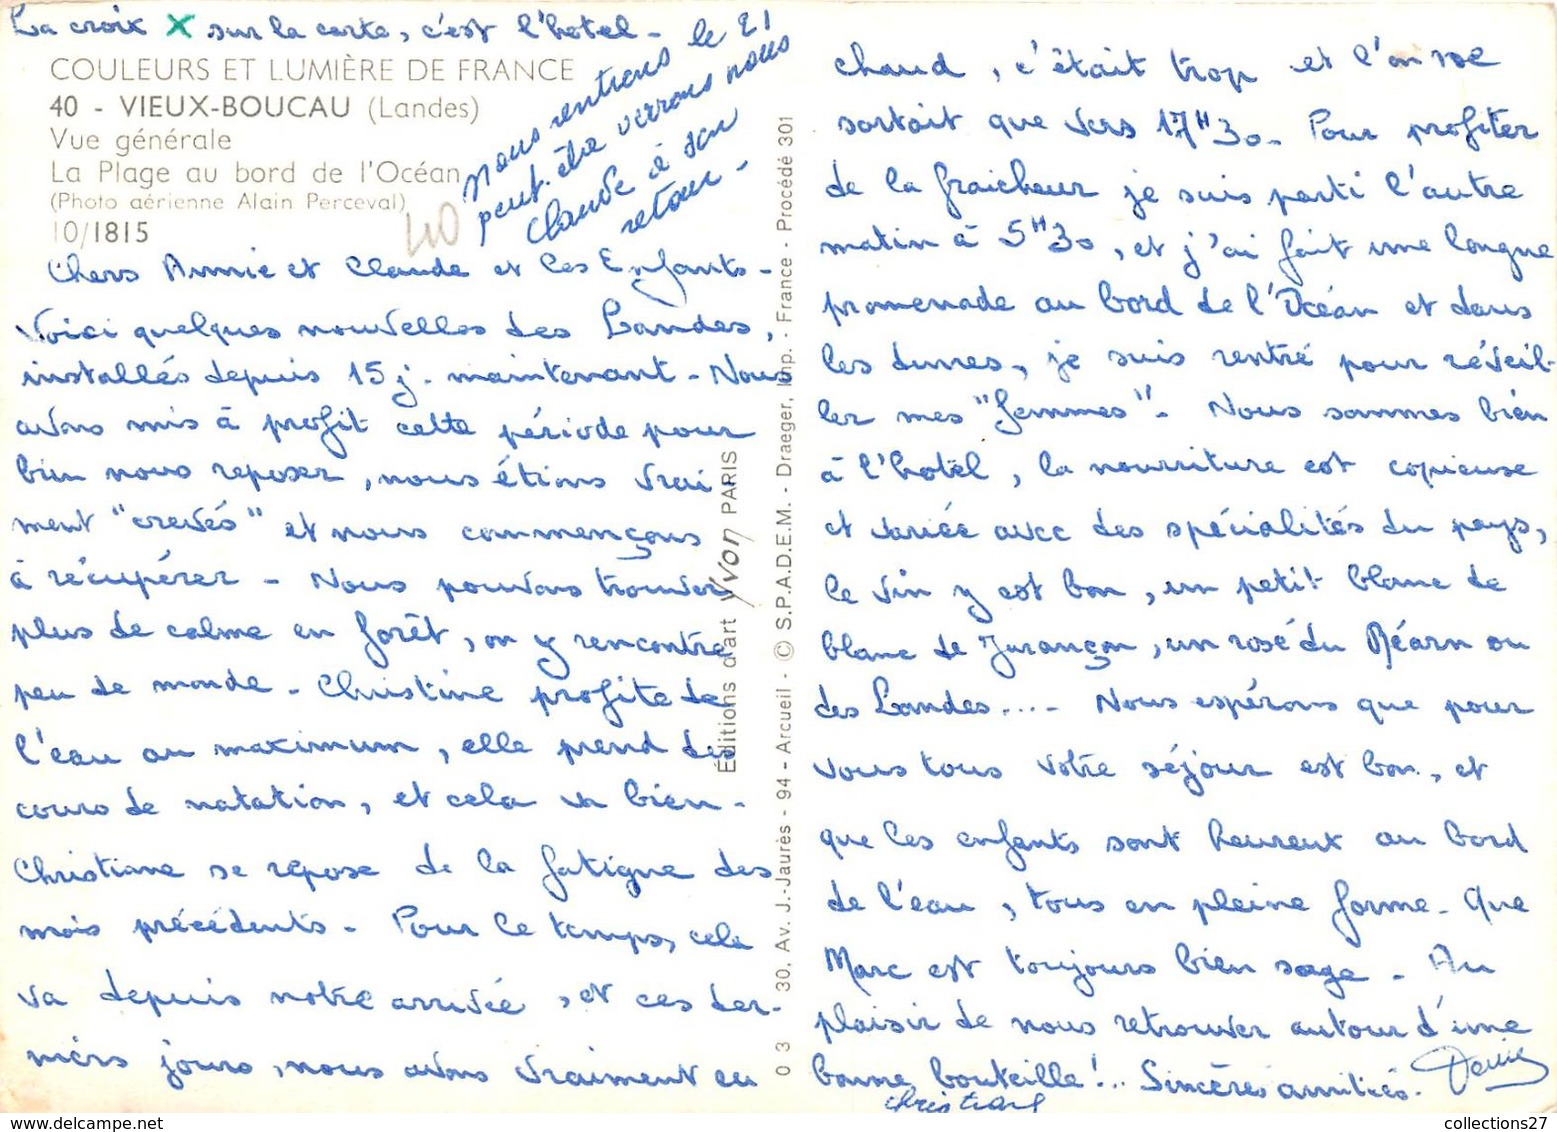 La croix X sur la carte, c'est l'hotel -
COULEURS ET LUMIÈRE DE FRANCE
40 - VIEUX-BOUCAU (Landes)
Vue générale
La Plage au bord de l'Océan
(Photo aérienne Alain Perceval)
10/1815
40
nous rentrons le 21
peut-être verrons nous
Claude à son
retour -
Chers Annie et Claude et les Enfants -
Voici quelques nouvelles des Landes,
installés depuis 15 j. maintenant - Nous
avons mis à profit cette période pour
bien nous reposer, nous étions vrai
ment "crevés" et nous commençons
à récupérer - Nous pouvons trouver
plus de calme en forêt, on y rencontre
peu de monde - Christine profite de
l'eau au maximum, elle prend des
cours de natation, et cela va bien -
Christiane se repose de la fatigue des
mois précédents - Pour le temps, cela
va depuis notre arrivée, et ces der-
niers jours, nous avons vraiment eu
Éditions d'art Yvon PARIS
0 3 30, Av. J.-Jaurès - 94 - Arcueil - © S.P.A.D.E.M. - Draeger, Imp. - France - Procédé 301
chaud, c'était trop et l'on se
sortait que vers 17H30 - Pour profiter
de la fraicheur je suis parti l'autre
matin à 5H30, et j'ai fait une longue
promenade au bord de l'Océan et dans
les dunes, je suis rentré pour réveil-
ler mes "femmes" - Nous sommes bien
à l'hotel, la nourriture est copieuse
et variée avec des spécialités du pays,
le vin y est bon, un petit blanc de
blanc de Jurançon, un rosé du Béarn ou
des Landes .... Nous espérons que pour
vous tous votre séjour est bon, et
que les enfants sont heureux au bord
de l'eau, tous en pleine forme - Que
Marc est toujours bien sage - Au
plaisir de nous retrouver autour d'une
bonne bouteille !.. Sincères amitiés.
Christiane
collections27